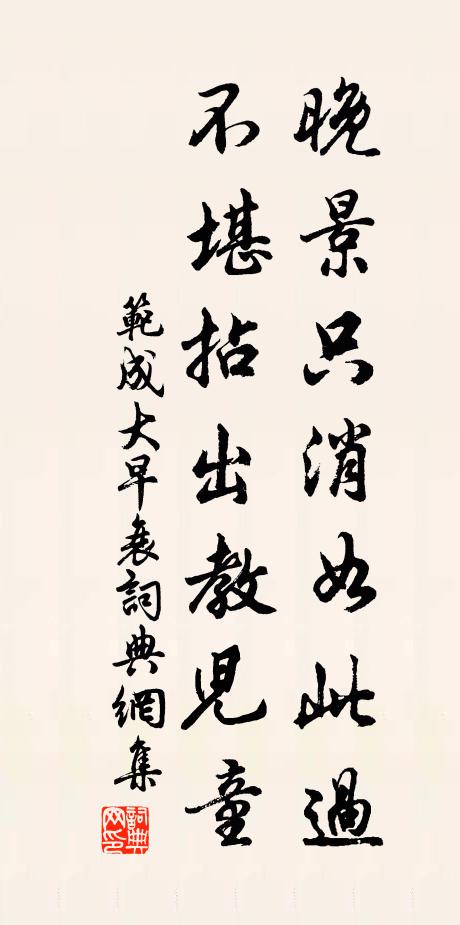 晚景只消如此過
不堪拈出教兒童
範成大早衰詞典網集
詞典網印